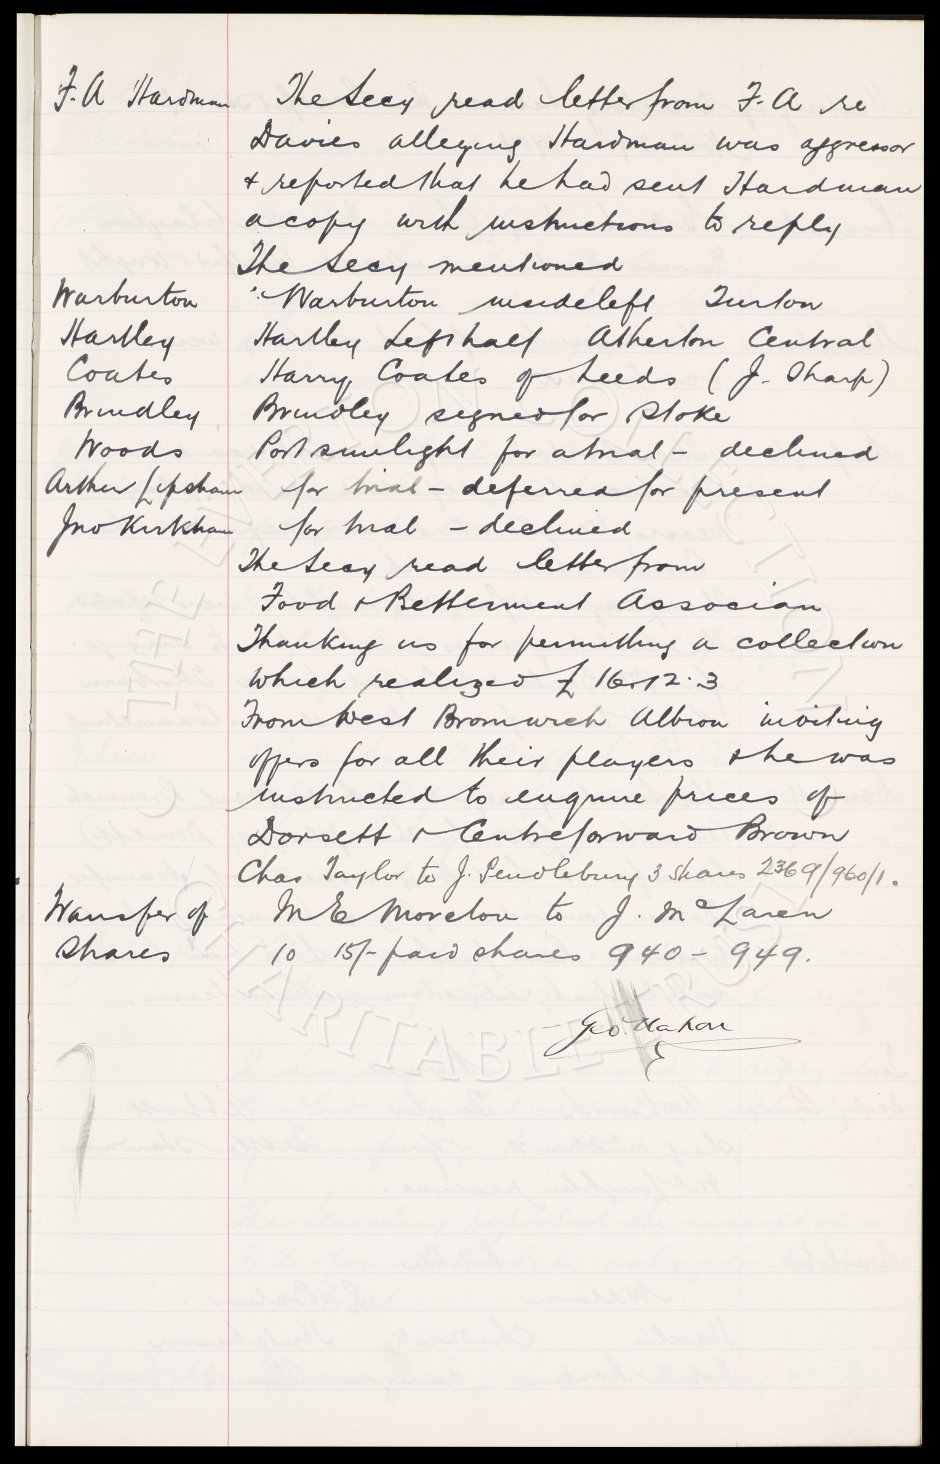 F. A Hardman The Secy read letter from F. A re
Davies alleging Hardman was aggressor
& reported that he had sent Hardman
a copy with instructions to reply
The Secy mentioned
Warburton Warburton inside left Turton
Hartley Hartley Left half Atherton Central
Coates Harry Coates of Leeds (J. Sharp)
Brindley Brindley signed for Stoke
Woods Port sunlight for a trial - declined
Arthur Lipsham for trial - deferred for present
Jno Kirkham for trial - declined
The Secy read letter from
Food & Betterment Associan
Thanking us for permitting a collection
which realized £16.12.3
From West Bromwich Albion inviting
offers for all their players & he was
instructed to enquire prices of
Dorsett & Centre forward Brown
Chas Taylor to J. Pendlebury 3 shares 2369/960/1.
Transfer of M E Moreton to J. McLaren
Shares 10 15/- paid shares 940 - 949.
Geo. Mahon
THE EVERTON COLLECTION
CHARITABLE TRUST